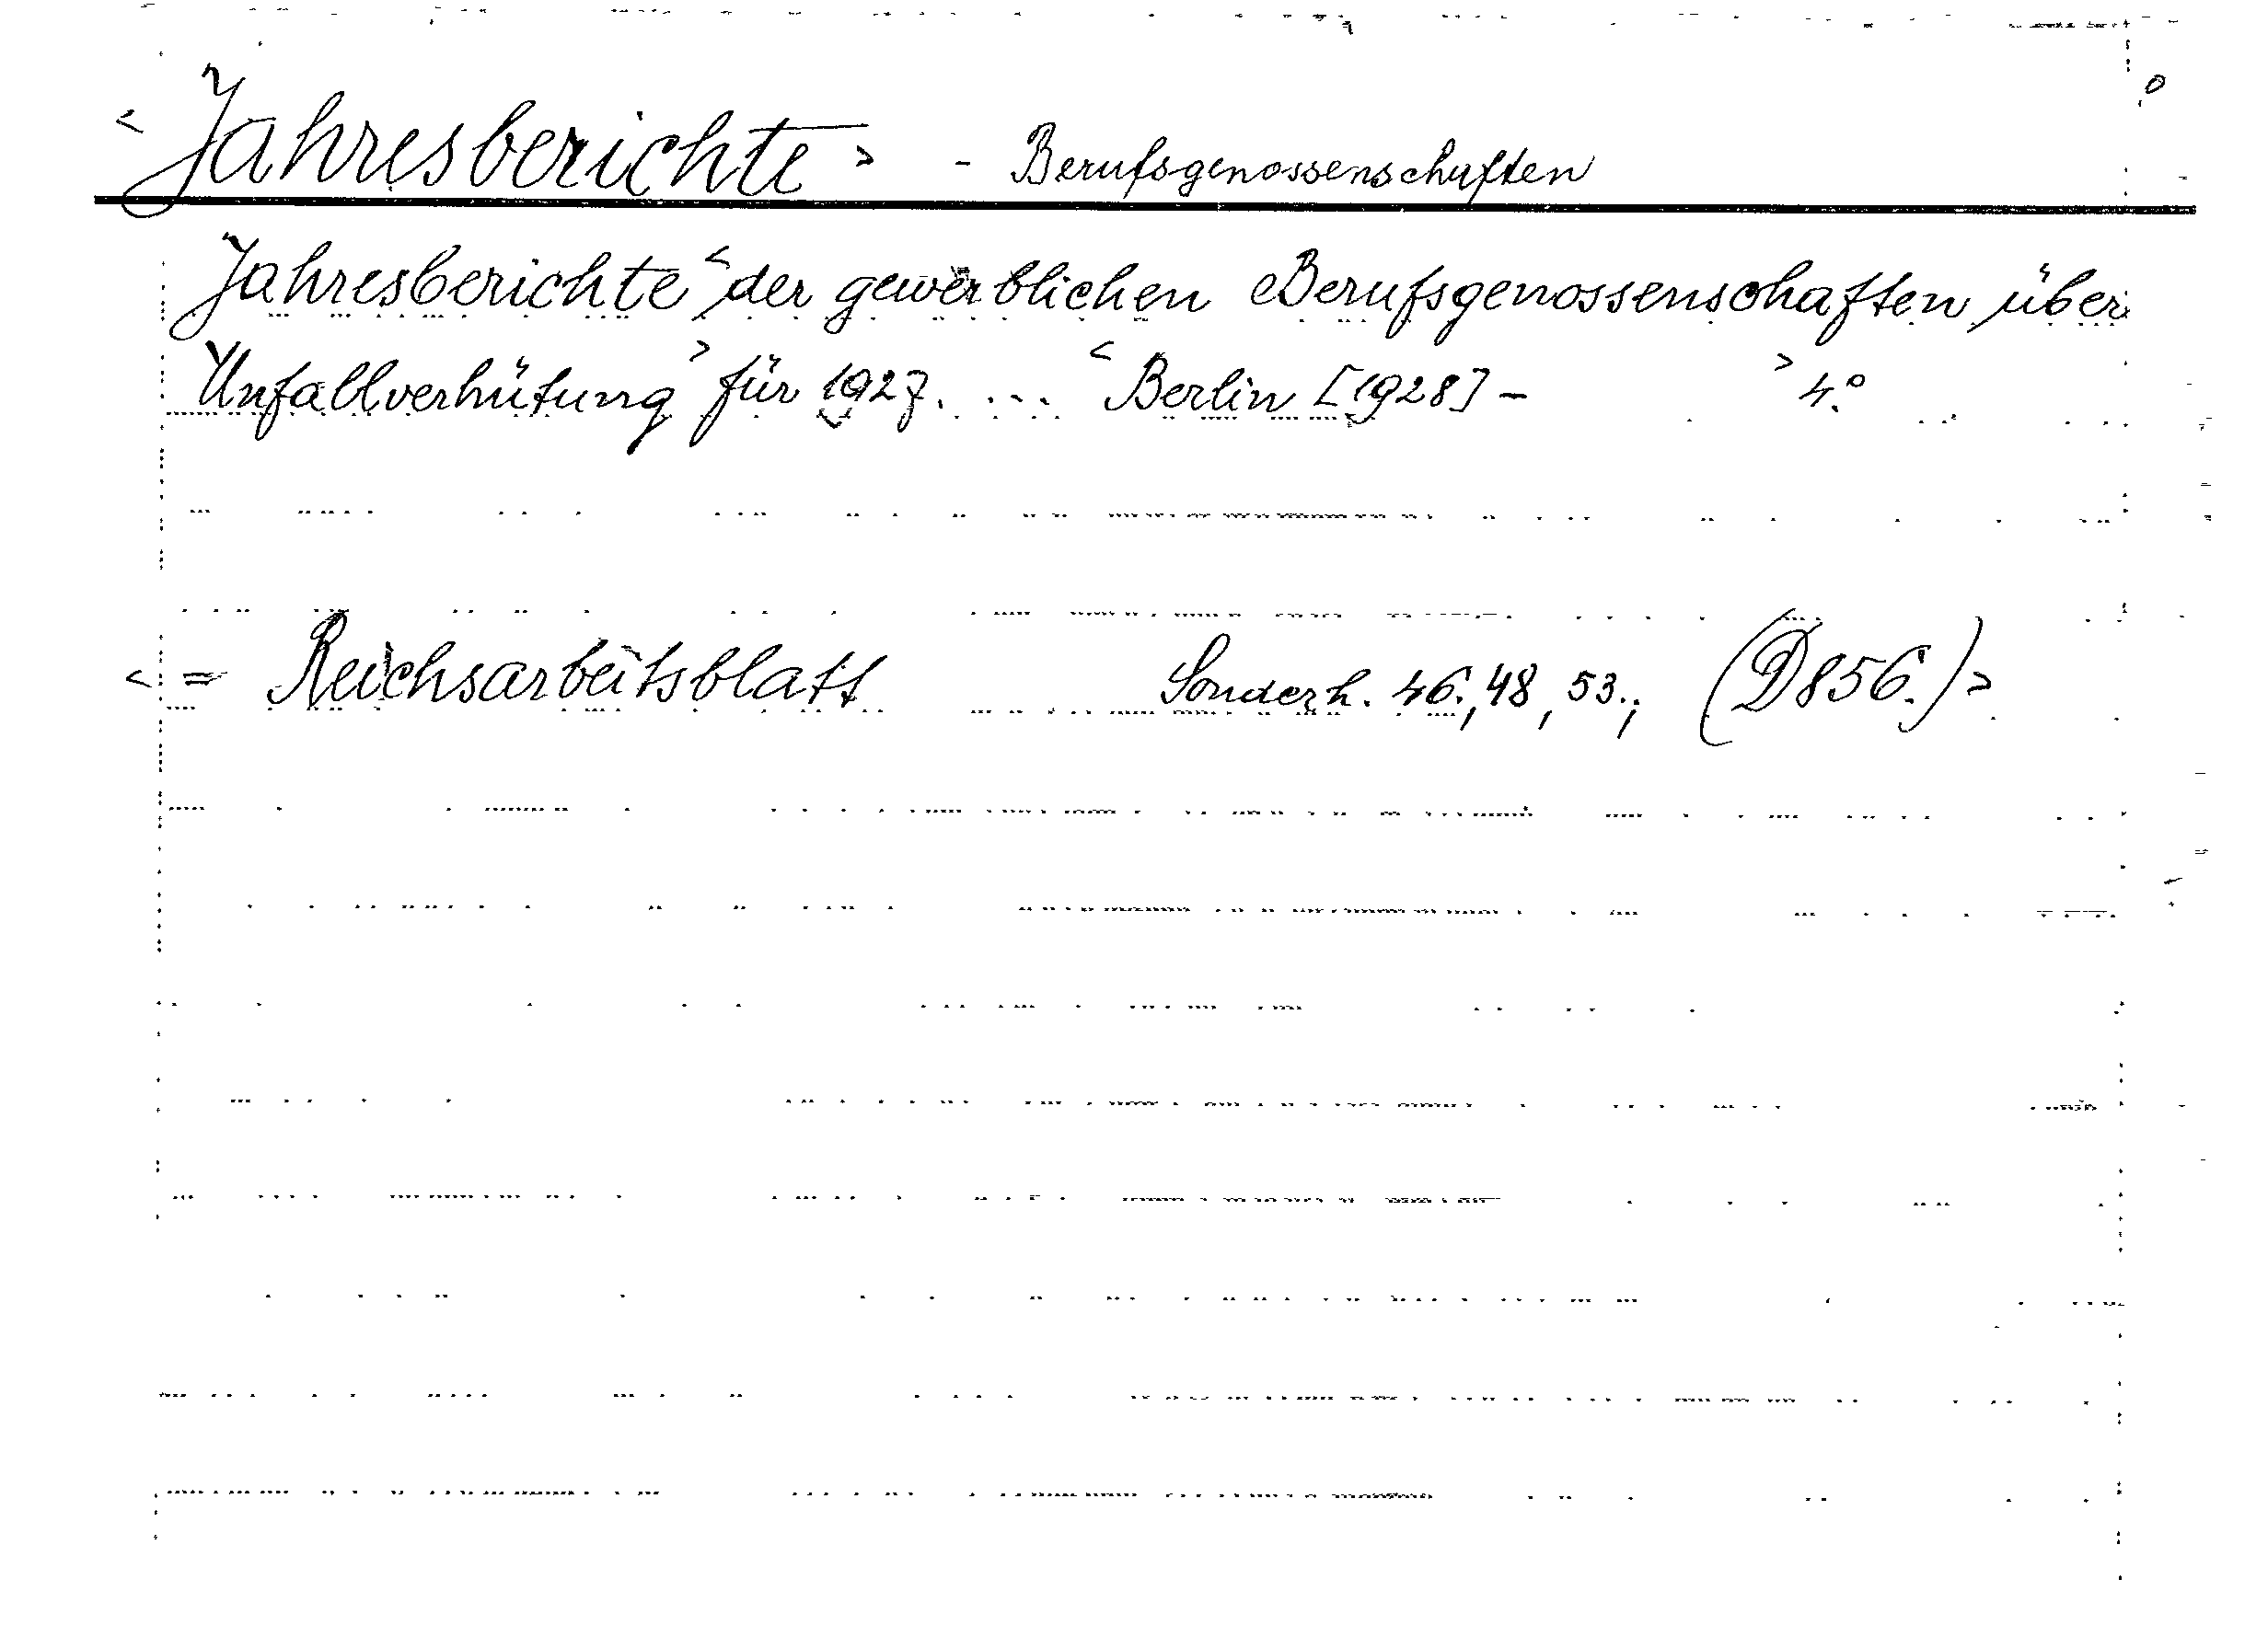 < Jahresberichte > - Berufsgenossenschaften
Jahresberichte < der gewerblichen Berufsgenossenschaften über
Unfallverhütung > für 1927. ... < Berlin [1928] - > 4.°
< = Reichsarbeitsblatt Sonderh. 46., 48, 53., (D 856.) >